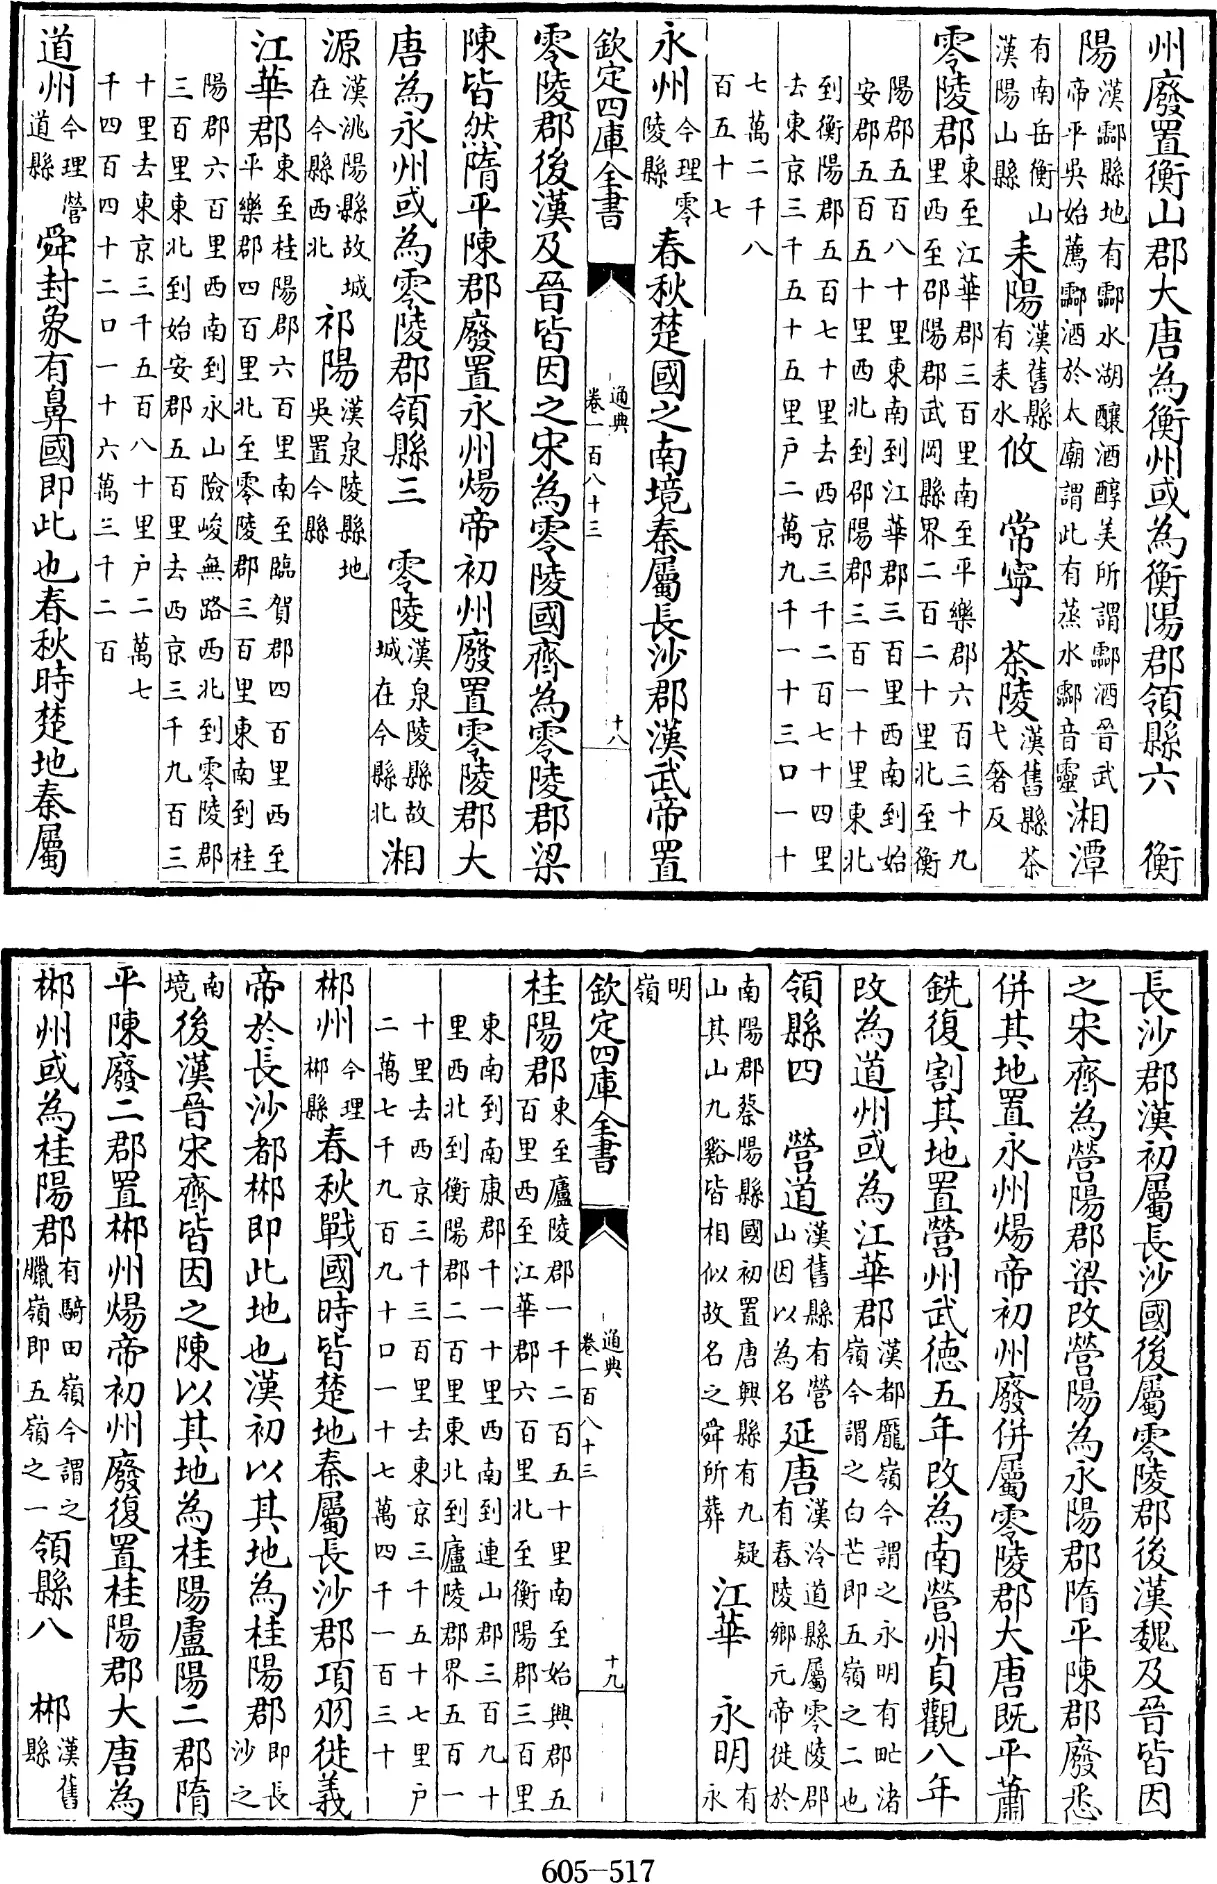 州廢置衡山郡大唐為衡州或為衡陽郡領縣六　衡
陽漢酃縣地有酃水湖釀酒醇美所謂酃酒晉武帝平吳始薦酃酒於太廟謂此有蒸水酃音靈湘潭
有南岳衡山漢陽山縣耒陽漢舊縣有耒水攸　常寧　茶陵漢舊縣茶弋奢反
零陵郡東至江華郡三百里南至平樂郡六百三十九里西至邵陽郡武岡縣界二百二十里北至衡
陽郡五百八十里東南到江華郡三百里西南到始安郡五百五十里西北到邵陽郡三百一十里東北
到衡陽郡五百七十里去西京三千二百七十四里去東京三千五十五里户二萬九千一十三口一十
七萬二千八百五十七
永州今理零陵縣春秋楚國之南境秦屬長沙郡漢武帝置
欽定四庫全書　通典卷一百八十三　十八
零陵郡後漢及晉皆因之宋為零陵國齊為零陵郡梁
陳皆然隋平陳郡廢置永州煬帝初州廢置零陵郡大
唐為永州或為零陵郡領縣三　零陵漢泉陵縣故城在今縣北湘
源漢洮陽縣故城在今縣西北祁陽漢泉陵縣地吳置今縣
江華郡東至桂陽郡六百里南至臨賀郡四百里西至平樂郡四百里北至零陵郡三百里東南到桂
陽郡六百里西南到永山險峻無路西北到零陵郡三百里東北到始安郡五百里去西京三千九百三
十里去東京三千五百八十里户二萬七千四百四十二口一十六萬三千二百
道州今理營道縣舜封象有鼻國即此也春秋時楚地秦屬
長沙郡漢初屬長沙國後屬零陵郡後漢魏及晉皆因
之宋齊為營陽郡梁改營陽為永陽郡隋平陳郡廢悉
併其地置永州煬帝初州廢併屬零陵郡大唐既平蕭
銑復割其地置營州武德五年改為南營州貞觀八年
改為道州或為江華郡漢都龎嶺今謂之永明有甿渚嶺今謂之白芒即五嶺之二也
領縣四　營道漢舊縣有營山因以為名延唐漢泠道縣屬零陵郡有舂陵鄉元帝徙於
南陽郡蔡陽縣國初置唐興縣有九疑山其山九谿皆相似故名之舜所葬江華　永明有永
明嶺
欽定四庫全書　通典卷一百八十三　十九
桂陽郡東至廬陵郡一千二百五十里南至始興郡五百里西至江華郡六百里北至衡陽郡三百里
東南到南康郡千一十里西南到連山郡三百九十里西北到衡陽郡二百里東北到廬陵郡界五百一
十里去西京三千三百里去東京三千五十七里户二萬七千九百九十口一十七萬四千一百三十
郴州今理郴縣春秋戰國時皆楚地秦屬長沙郡項羽徙義
帝於長沙都郴即此地也漢初以其地為桂陽郡即長沙之
南境後漢晉宋齊皆因之陳以其地為桂陽盧陽二郡隋
平陳廢二郡置郴州煬帝初州廢復置桂陽郡大唐為
郴州或為桂陽郡有騎田嶺今謂之臘嶺即五嶺之一領縣八　郴漢舊縣
605-517